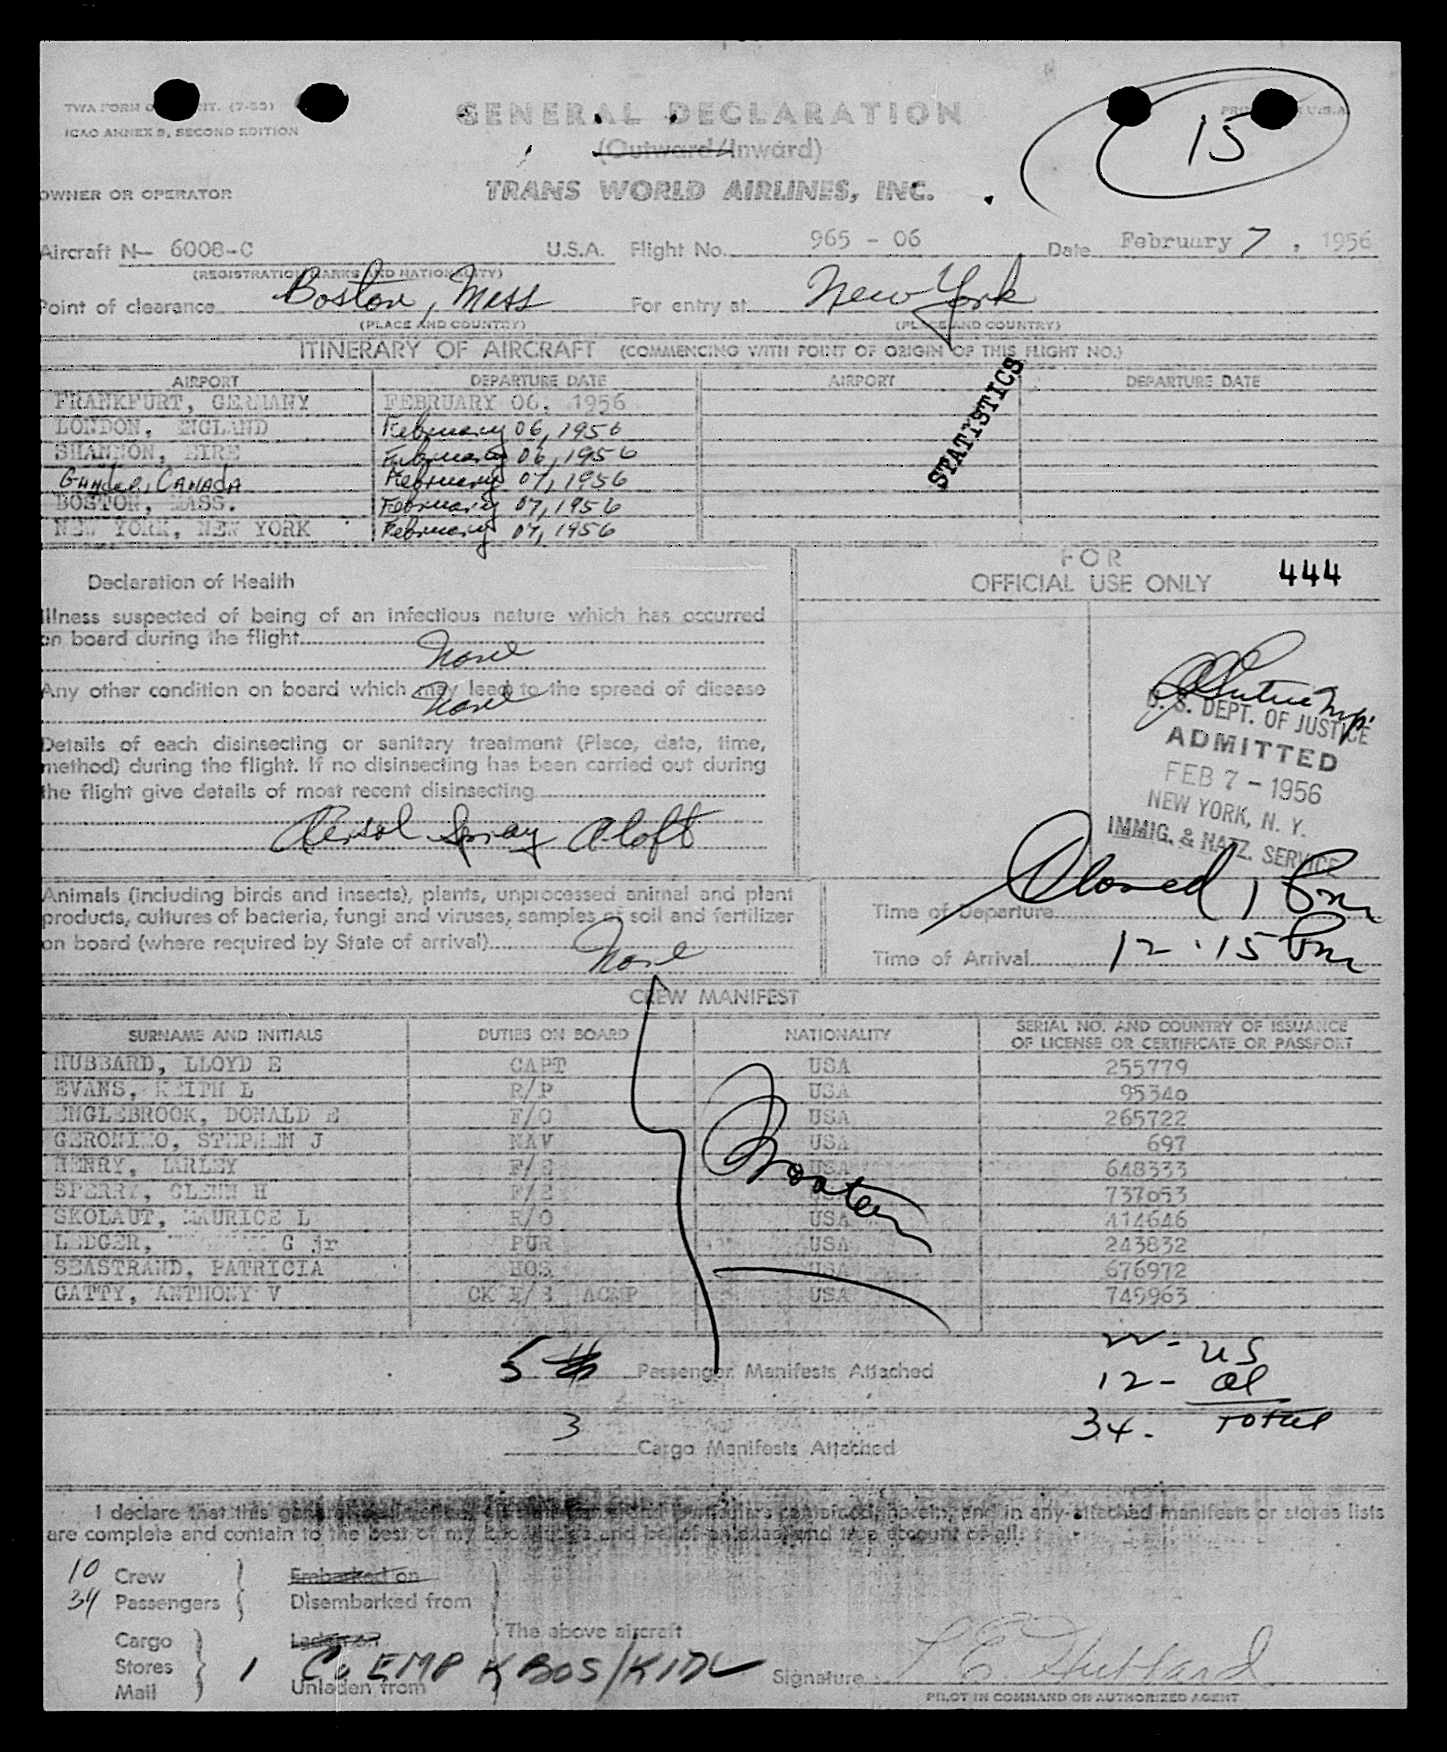 TWA FORM INT. (7-55)
PRINTED IN U.S.A.
ICAO ANNEX 9, SECOND EDITION
GENERAL DECLARATION
15
(Outward/Inward)
OWNER OR OPERATOR
TRANS WORLD AIRLINES, INC.
Aircraft N— 6008-C U.S.A. Flight No. 965 - 06 Date February 7, 1956
(REGISTRATION MARKS AND NATIONALITY)
Point of clearance Boston, Mass For entry at New York
(PLACE AND COUNTRY) (PLACE AND COUNTRY)
ITINERARY OF AIRCRAFT (COMMENCING WITH POINT OF ORIGIN OF THIS FLIGHT NO.)
AIRPORT DEPARTURE DATE AIRPORT DEPARTURE DATE
FRANKFURT, GERMANY FEBRUARY 06, 1956
LONDON, ENGLAND February 06, 1956
SHANNON, EIRE February 06, 1956
Gander, CANADA February 07, 1956
BOSTON, MASS. February 07, 1956
NEW YORK, NEW YORK February 07, 1956
STATISTICS
FOR
OFFICIAL USE ONLY 444
Declaration of Health
Illness suspected of being of an infectious nature which has occurred
on board during the flight
None
Any other condition on board which may lead to the spread of disease
None
Details of each disinsecting or sanitary treatment (Place, date, time,
method) during the flight. If no disinsecting has been carried out during
the flight give details of most recent disinsecting
Aersol Spray Aloft
U. S. DEPT. OF JUSTICE
ADMITTED
FEB 7 - 1956
NEW YORK, N. Y.
IMMIG. & NATZ. SERVICE
Animals (including birds and insects), plants, unprocessed animal and plant
products, cultures of bacteria, fungi and viruses, samples of soil and fertilizer
on board (where required by State of arrival)
None
Time of Departure Closed 1 Pm
Time of Arrival 12:15 Pm
CREW MANIFEST
SURNAME AND INITIALS DUTIES ON BOARD NATIONALITY SERIAL NO. AND COUNTRY OF ISSUANCE
OF LICENSE OR CERTIFICATE OR PASSPORT
HUBBARD, LLOYD E CAPT USA 255779
EVANS, KEITH L R/P USA 95340
ENGLEBROOK, DONALD E F/O USA 265722
GERONIMO, STEPHEN J NAV USA 697
HENRY, HARLEY F/E USA 648333
SPERRY, GLENN H F/E USA 737053
SKOLAUT, MAURICE L R/O USA 414646
LEDGER, G jr PUR USA 243832
SEASTRAND, PATRICIA HOS USA 676972
GATTY, ANTHONY V CK F/E ACMP USA 745963
5 Passenger Manifests Attached
22 - US
12 - al
34 - Total
3 Cargo Manifests Attached
I declare that this general declaration, and in any attached manifests or stores lists
are complete and contain to the best of my knowledge and belief an exact and true account of all:
10 Crew Embarked on
34 Passengers Disembarked from
The above aircraft
Cargo Laden on
Stores 1 Co EMP K BOS/KIDL
Mail Unladen from
Signature L E Hubbard
PILOT IN COMMAND OR AUTHORIZED AGENT